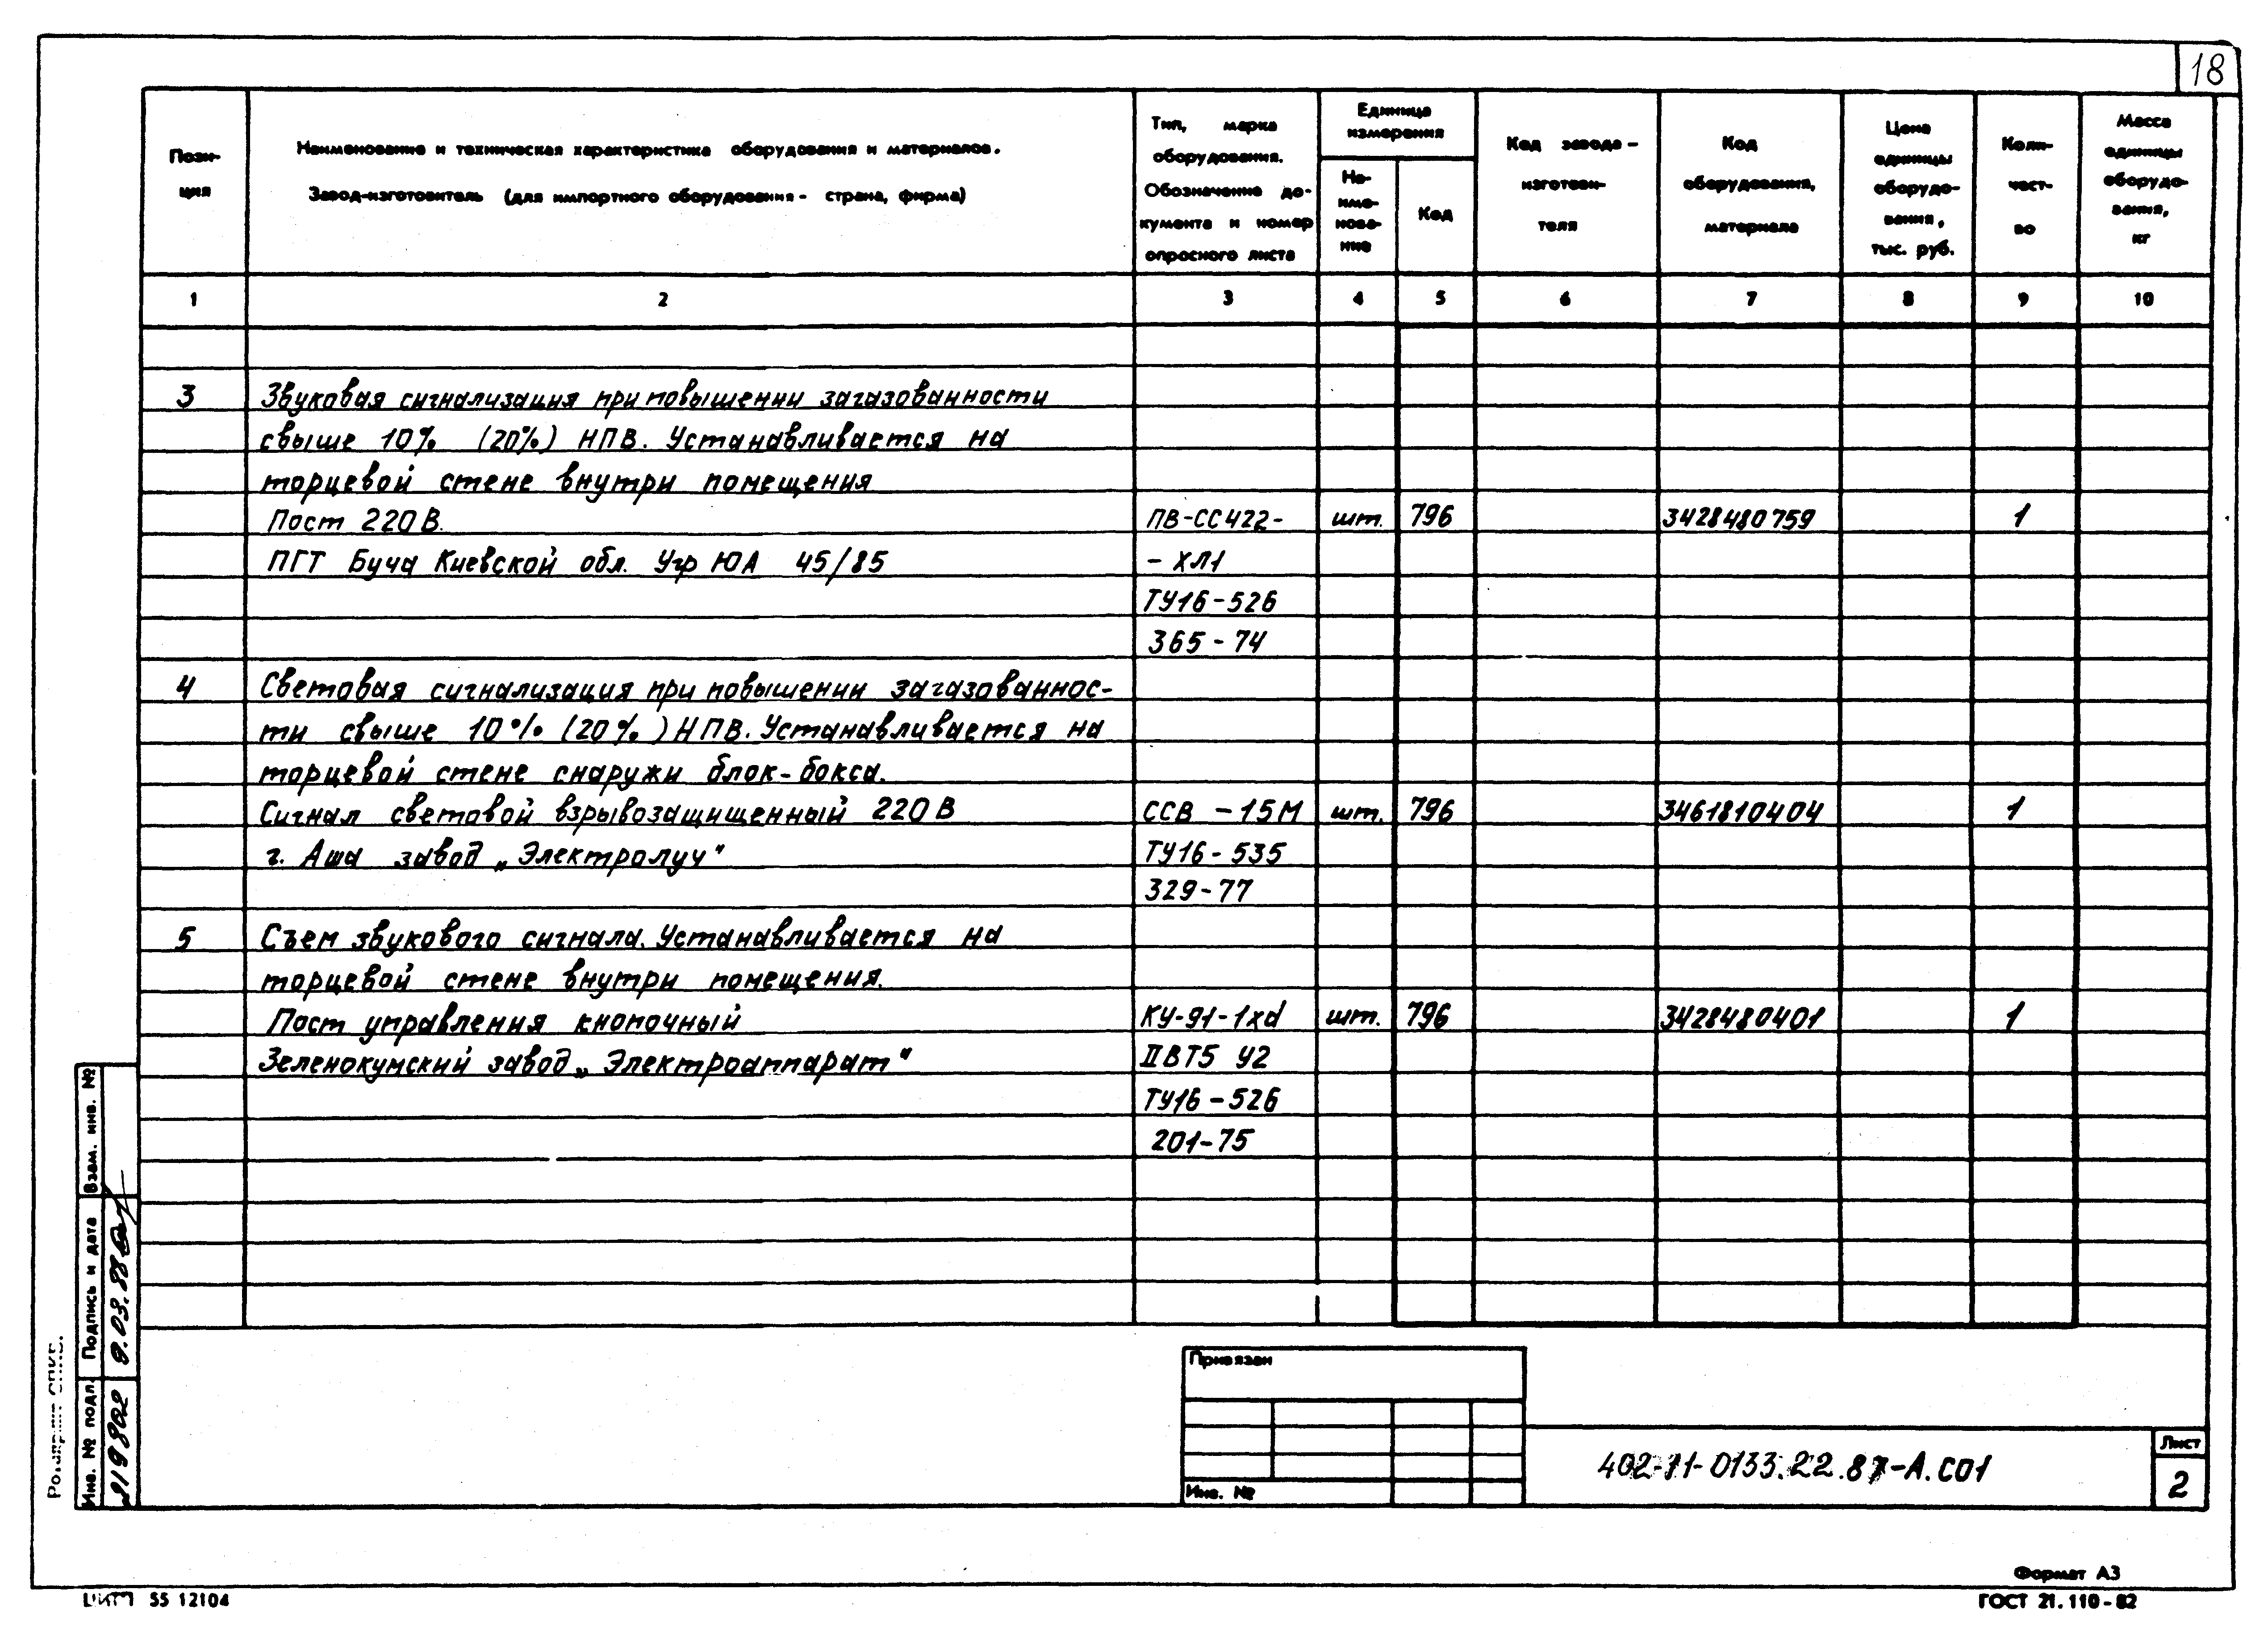 18
Пози-
ция
Наименование и техническая характеристика оборудования и материалов.
Завод-изготовитель (для импортного оборудования - страна, фирма)
Тип, марка
оборудования.
Обозначение до-
кумента и номер
опросного листа
Единица
измерения
На-
име-
нова-
ние
Код
Код завода -
изготови-
теля
Код
оборудования,
материала
Цена
единицы
оборудо-
вания,
тыс. руб.
Коли-
чест-
во
Масса
единицы
оборудо-
вания,
кг
1 2 3 4 5 6 7 8 9 10
3 Звуковая сигнализация при повышении загазованности
свыше 10% (20%) НПВ. Устанавливается на
торцевой стене внутри помещения
Пост 220В. ПВ-СС422- шт. 796 3428480759 1
ПГТ Буча Киевской обл. Учр ЮА 45/85 - ХЛ1
ТУ16-526
365-74
4 Световая сигнализация при повышении загазованнос-
ти свыше 10% (20%) НПВ. Устанавливается на
торцевой стене снаружи блок-бокса.
Сигнал световой взрывозащищенный 220В ССВ -15М шт. 796 3461810404 1
г. Аша завод „Электролуч" ТУ16-535
329-77
5 Съем звукового сигнала. Устанавливается на
торцевой стене внутри помещения.
Пост управления кнопочный КУ-91-1хd шт. 796 3428480401 1
Зеленокумский завод „Электроаппарат" IIВТ5 У2
ТУ16-526
201-75
Взам. инв. №
Подпись и дата
9.03.88
Инв. № подл.
Привязан
Инв. №
402-11-0133.22.87-А.СО1
Лист
2
Формат А3
ГОСТ 21.110-82
ЦИТП 55 12104